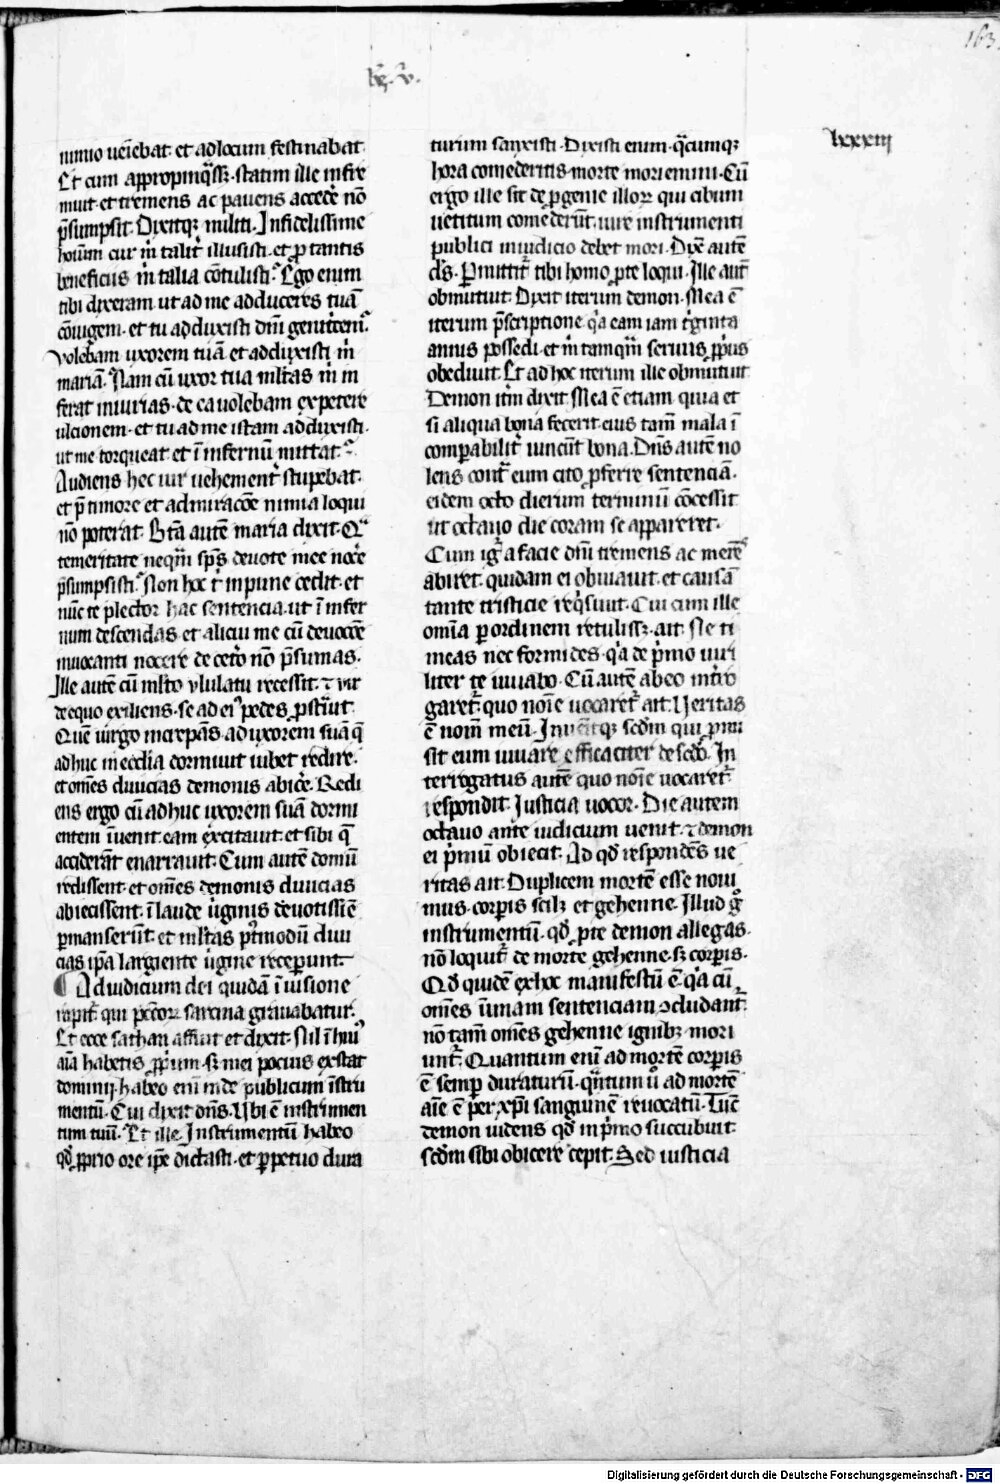 163.
lxxxiii
nimio ueīebat et ad locum festinabat.
Et cum appropinq̄ssꝫ. statim ille infre
muit et tremens ac pauens accedē nō
p̄sumpsit. Dixitqꝫ militi. Infidelissime
hoīum cur m̄ talit̄ illusisti. et ꝓ tantis
beneficiis m̄ talia cōtulisti. Ego enim
tibi dixeram ut ad me adduceres tuā
cōiugem. et tu adduxisti dn̄i genitricem.
volebam uxorem tuā et adduxisti m̄
mariā. Nam cū uxor tua ml̄tas m̄ in
ferat iniurias. de ea volebam expetere
ulcionem. et tu ad me istam adduxisti.
ut me torqueat et ī infernū mittat.
Audiens hec uir uehement̄ stupebat.
et p̄ timore et admiracōe nimia loqui
nō poterat. Bt̄a autē maria dixit. Qua
temeritate neqm̄ sp̄s deuote mee nocē
p̄sumpsisti. Non hoc t̄ inpune cedit. et
nūc te plector hac sentencia. ut ī infer
num descendas et alicui me cū deuocōe
inuocanti nocere de cet̄o nō p̄sumas.
Ille autē cū ml̄to vlulatu recessit. ⁊ vir
de equo exiliens. se ad eiꝰ pedes ꝓstᵃuit.
Quē uirgo increpās ad uxorem suā q̄
adhuc in ecclīa dormiuit iubet redire.
et om̄es diuicias demonis abicē. Redi
ens ergo cū adhuc uxorem suā dormi
entem īuenit eam excitauit. et sibi q̄
acciderāt enarrauit. Cum autē domū
redissent et om̄es demonis diuicias
abiecissent. ī laude ūginis deuotissīe
ꝑmanserūt. et ml̄tas p̄tmodū diui
cias ip̄a largiente ūgine receperunt.
Ad iudicium dei quidā ī uisione
rapit̄ qui pctōꝝ sarcina grauabatur.
Et ecce sathan affuit et dixit. Nil ī hac
aīa habetis ꝓprium. sꝫ mei pocius exstat
dominij. habeo enī inde publicum īstru
mentū. Cui dixit dn̄s. Ubi ē instrumen
tum tuū. Et ille. Instrumentū habeo
qd̄ ꝓprio ore ip̄e dictasti. et ꝑpetuo dura
turum sanxisti. Dixisti enim. q̄cumqꝫ
hora comederitis morte moriemini. Cū
ergo ille sit de ꝓgenie illoꝝ qui cibum
uetitum comederūt. iure instrumenti
publici in iudicio debet mori. Dix̄ autē
dn̄s. Permittit̄ tibi homo ꝓ te loqui. Ille aut̄
obmutuit. Dixit iterum demon. Mea ē
iterum p̄scriptione. qꝛ eam iam tᵢginta
annis possedi. et m̄ tamqm̄ seruus ꝓprius
obediuit. Et ad hoc iterum ille obmutuit.
Demon itm̄ dixit. Mea ē etiam. quia et
si aliqua bona fecerit. eius tam̄ mala ī
comparabilit̄ uincūt bona. Dn̄s autē no
lens contᵃ eum cito ꝓferre sentenciā.
eidem octo dierum terminū cōcessit
ut octauo die coram se appareret.
Cum igit̄ a facie dn̄i tremens ac merēs
abiret. quidam ei obuiauit. et causā
tante tristicie reqᵢsiuit. Cui cum ille
omīa per ordinem retulissꝫ. ait. Ne ti
meas nec formides. qꝛ de pᵢmo uiri
liter te iuuabo. Cū autē ab eo int̄ro
garet̄ quo noīe uocaret̄ ait. Ueritas
ē nom̄ meū. Inuenitqꝫ scd̄m qui ꝓmi
sit eum iuuare efficaciter de scd̄o. In
terrogatus autē quo noīe uocaret̄
respondit. Justicia uocor. Die autem
octauo ante iudicium uenit. ⁊ demon
ei pᵢmū obiecit. Ad qd̄ respondēs ue
ritas ait. Duplicem mortē esse noui
mus. corꝑis scilꝫ et gehenne. Illud g̊
instrumentū. qd̄ ꝓ te demon allegas.
nō loquit̄ de morte gehenne. sꝫ corꝑis.
Qd̄ quidē ex hoc manifestū ē. qꝛ cū
om̄es ī unam sentenciam ꝯcludant̄.
nō tam̄ om̄es gehenne ignibꝫ mori
unt̄. Quantum enī ad mortē corꝑis
ē semꝑ duraturū. qn̄tum ū ad mortē
aīe ē per xp̄i sanguinē reuocatū. Tūc
demon uidens qd̄ in pᵢmo succubuit.
scd̄m sibi obicere cepit. Sed iusticia
Digitalisierung gefördert durch die Deutsche Forschungsgemeinschaft - DFG